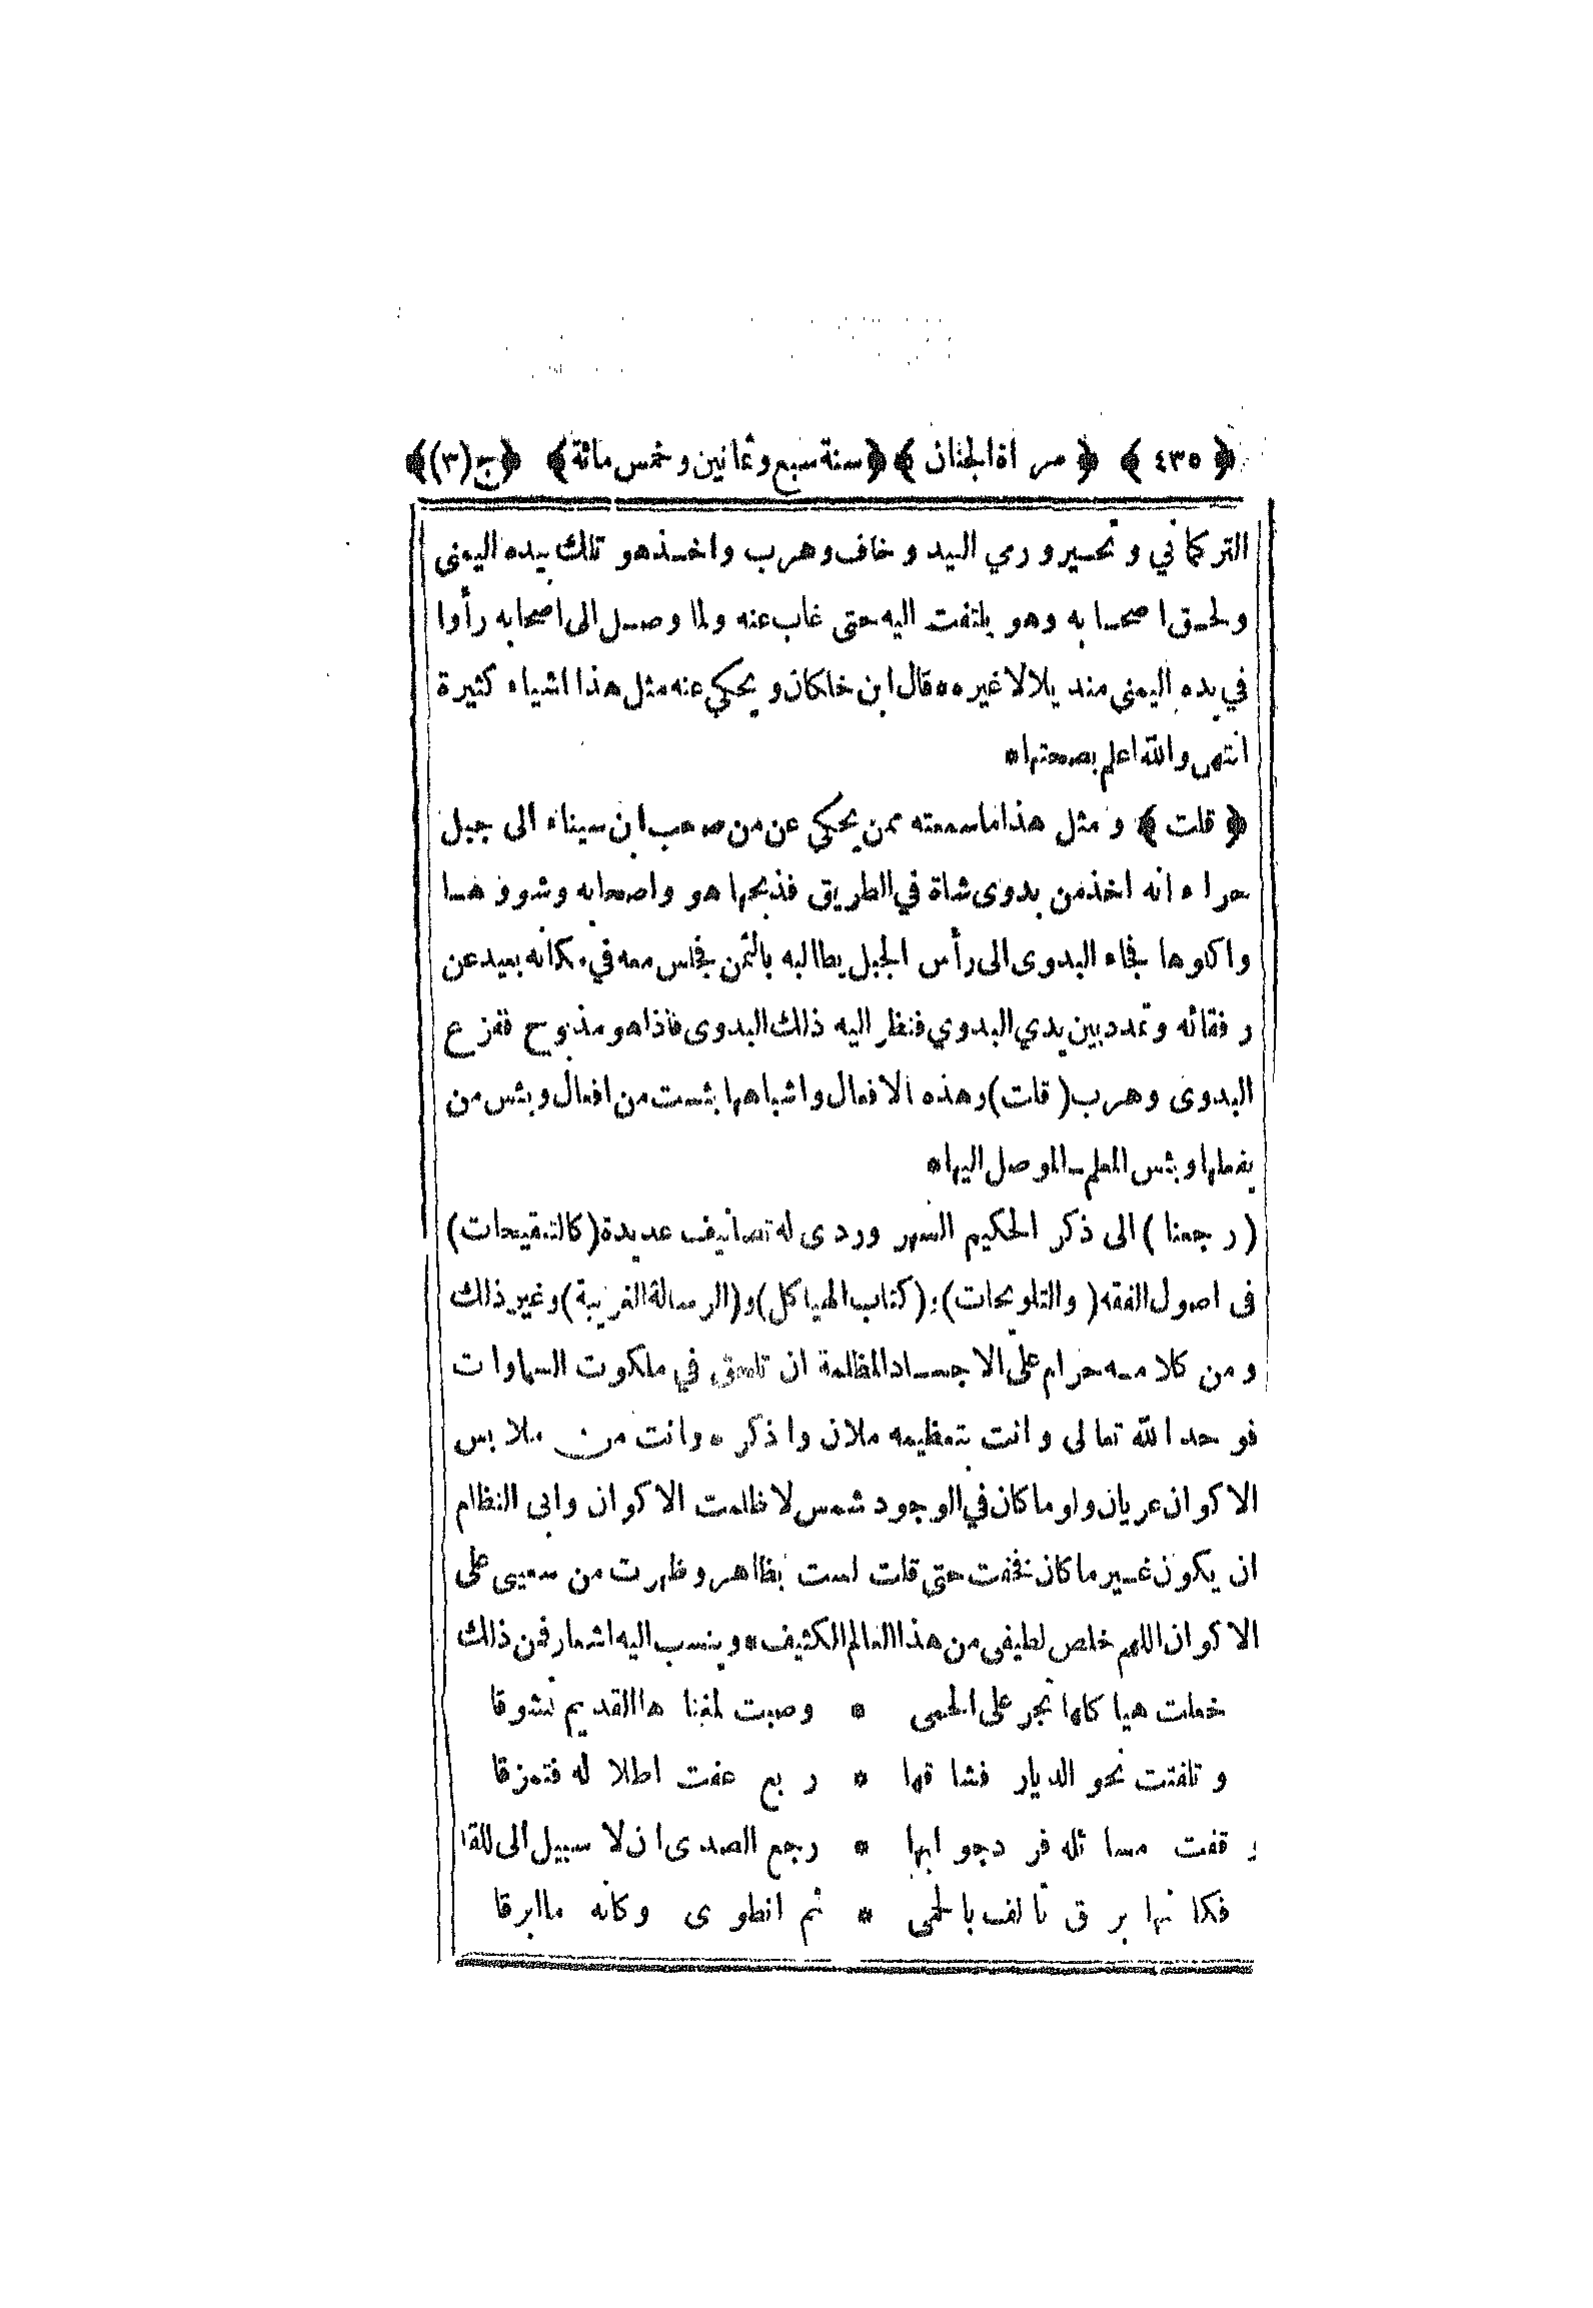 ﴿ ٤٣٥ ﴾ ﴿ مراة الجنان ﴾ ﴿ سنة سبع وثمانين وخمس مائة ﴾ ﴿ ج (٣) ﴾
التركماني وتحسير ورمي اليد وخاف وهرب واخذ هو تلك بيده اليمنى
ولحق اصحابه وهو يلتفت اليه حتى غاب عنه ولما وصل الى اصحابه رأوا
في يده اليمنى منديلا لا غيره * قال ابن خلكان ويحكي عنه مثل هذا اشياء كثيرة
انتهى والله اعلم بصحتها *
﴿ قلت ﴾ ومثل هذا ما سمعته ممن يحكي عن من صحب ابن سيناء الى جبل
حراء انه اخذ من بدوى شاة في الطريق فذبحها هو واصحابه وشووها
واكلوها فجاء البدوى الى رأس الجبل يطالبه بالثمن فجلس معه في مكانه بعيد عن
رفقائه وتمدد بين يدي البدوي فنظر اليه ذلك البدوى فاذا هو مذبوح ففزع
البدوى وهرب (قلت) وهذه الافعال واشباهها بئست من افعال وبئس من
يفعلها وبئس المعلم الموصل اليها *
(رجعنا) الى ذكر الحكيم السهروردى له تصانيف عديدة (كالتنقيحات)
فى اصول الفقه (والتلويحات) و(كتاب الهياكل) و(الرسالة الغريبة) وغير ذلك
ومن كلامه حرام على الاجساد المظلمة ان تلحق في ملكوت السماوات
فوحد الله تعالى وانت بتعظيمه ملان واذكره وانت من ملابس
الاكوان عريان ولو ما كان في الوجود شمس لاظلمت الاكوان وابى النظام
ان يكون غير ما كان فخفت حتى قلت لست بظاهر وظهرت من سعيى على
الاكوان اللهم خلص لطيفى من هذا العالم الكثيف * وينسب اليه اشعار فمن ذلك
خملت هياكلها تجر على الحمى * وصبت لمغناها القديم تشوقا
وتلفتت نحو الديار فشاقها * ربع عفت اطلاله فتمزقا
وقفت مسائله فرد جوابها * رجع الصدى ان لا سبيل الى للقا
فكانها برق تالف بالحمى * ثم انطوى وكانه ما ابرقا